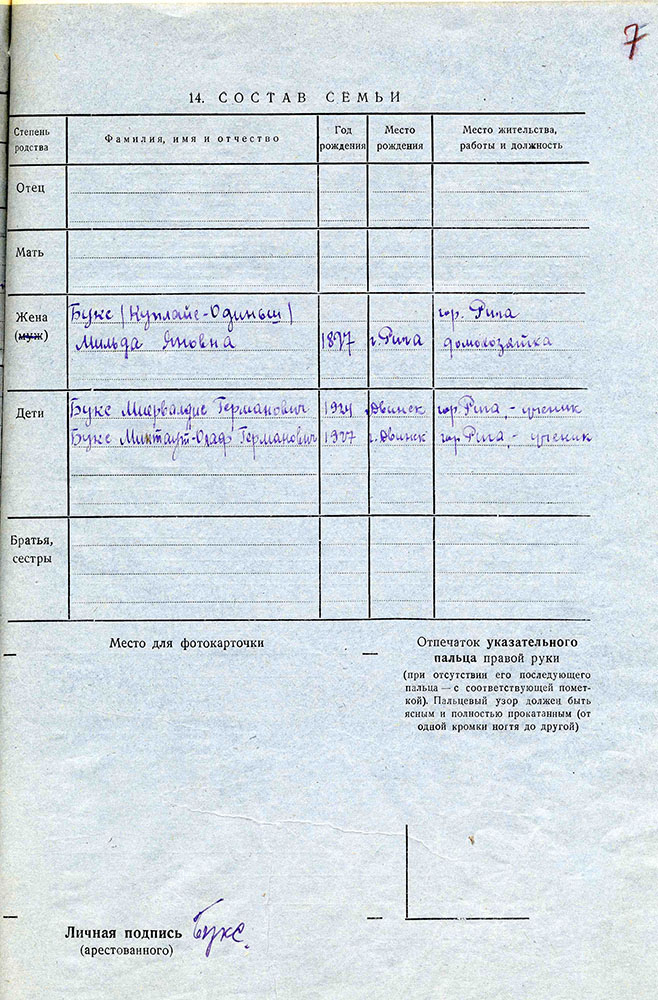 7
14. СОСТАВ СЕМЬИ
Степень родства | Фамилия, имя и отчество | Год рождения | Место рождения | Место жительства, работы и должность
Отец
Мать
Жена | Букс (Куплайс-Одиньш) | гор. Рига
(муж) | Мильда Яновна | 1897 | г. Рига | домохозяйка
Дети | Букс Миервалдис Германович | 1924 | г. Двинск | гор. Рига, - ученик
Букс Минтаут-Олаф Германович | 1927 | г. Двинск | гор. Рига, - ученик
Братья,
сестры
Место для фотокарточки
Отпечаток указательного
пальца правой руки
(при отсутствии его последующего
пальца — с соответствующей помет-
кой). Пальцевый узор должен быть
ясным и полностью прокатанным (от
одной кромки ногтя до другой)
Личная подпись Букс.
(арестованного)